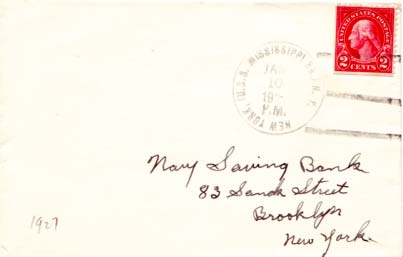 UNITED STATES POSTAGE
2 CENTS 2
NEW YORK, (U.S.S. MISSISSIPPI BR.) N.Y.
JAN
10
P.M.
Navy Saving Bank
83 Sands Street
Brooklyn
New York.
1927